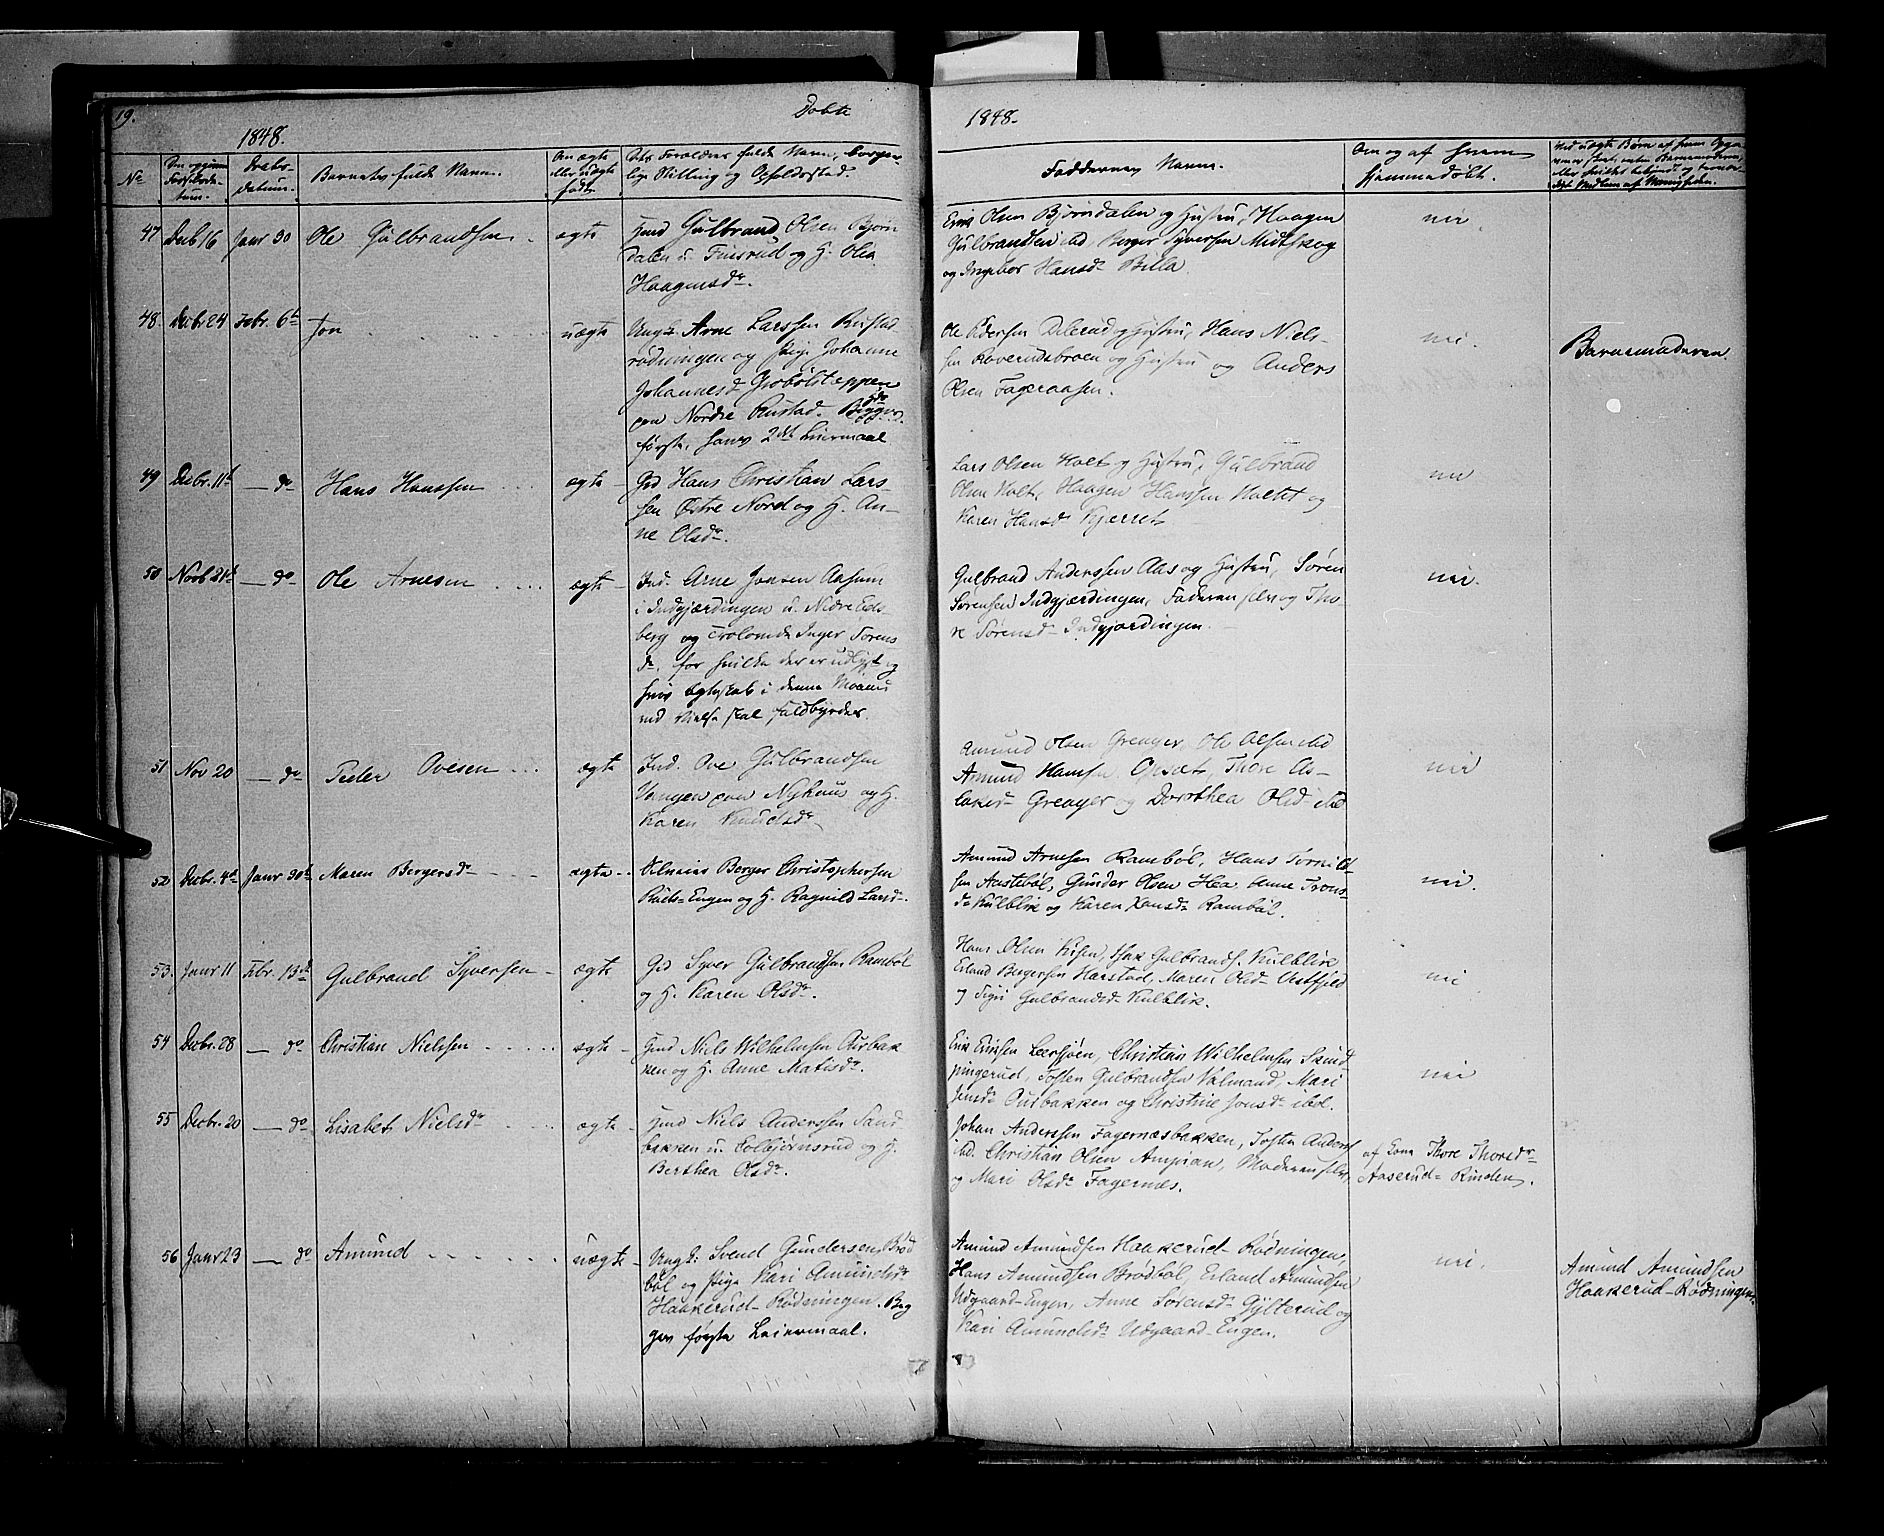 19.
Døbte
1848.
1848.
No
Daabs-
datum.
Barnets fulde Navn.
Om ægte
eller uægte
født.
Dets Forældres fulde Navn, borger-
lige Stilling og Opholdssted.
Faddernes Navne.
Om og af hvem
hjemmedøbt.
47 Decb 16 Janr 30 Ole Gulbrandsen ægte
Hmd Gulbrand Olsen Bjørn
dalen u. Finsrud og H. Olea
Haagensdr.
Erik Olsen Bjørndalen og Hustru, Haagen
Gulbrandsen ibd, Berger Syversen Midtskog
og Ingebor Hansdr Billa.
nei.
48. Decbr 24 Febr. 6te Jon uægte
Ungk. Arne Larssen Rustad-
rødningen og Pige Johanne
Johannesd
paa Nordre Rustad. Begges
første, hans 2det Leiermaal
Ole Pedersen og Hustru, Hans Niels-
sen Roverudsbroen og Hustru og Anders
Olsen Fageraasen.
nei.
Barnemoderen
49 Decbr. 11te — do Hans Hanssen ægte
Grd Hans Christian Lars-
sen Østre Nord og H. An-
ne Olsdr.
Lars Olsen Holt og Hustru, Gulbrand
Olsen Holt, Haagen Hanssen Holtet og
Karen Hansdr Kjærret
nei
50 Novb 21de — do Ole Arnesen ægte
Ind. Arne Jonsen Aasum
i Indgjærdingen u. Nedre Eds-
berg og Trolovede Inger Sørens
dr, for hvilke der er udlyst og
hvis Ægteskab i denne Maaned
ved Vielse skal fuldbyrdes.
Gulbrand Anderssen Aas og Hustru, Søren
Sørensen Indgjærdingen, Faderen selv og Tho-
re Sørensdr Indgjærdingen.
nei.
51 Nov 20 — do Peder Ovesen ægte
Ind. Ove Gulbrandsen
Vangen paa Nyhuus og H.
Karen Knudsdr
Amund Olsen Greager, Ole Olsen ibd
Amund Hansen Opsæt, Thore As-
laksdr Greager og Dorthea Olsd ibd
nei
52 Decbr. 4de Janr 30te Maren Bergersdr ægte
Berger Christophersen
Engen og H. Ragnild Larsd.
Amund Arnesen Rambøl, Hans Torkild-
sen Aastebøl, Gunder Olsen Hea, Anne Trons-
dr Kulblik og Karen Hansdr Rambøl.
nei.
53. Janr 11 Febr. 13de Gulbrand Syversen ægte
Grd Syver Gulbrandsen Rambøl
og H. Karen Olsdr.
Hans Olsen, Isak Gulbrands. Kulblik
Erland Bergersen Harstad, Maren Olsd Vestfjeld
og Sigri Gulbrandsd Kulblik.
nei
54 Decbr. 28 — do Christian Nielsen ægte
Hmd Niels Wilhelmsen Ourbak
ken og H. Anne Mathisdr.
Erik Eriksen Leersjøen, Christian Wilhelmsen Skind
pungerud, Tosten Gulbrandsen Valmand, Mari
Jensdr Ourbakken og Christine Jonsdr ibd.
nei
55 Decbr. 20 — do Lisabet Nielsdr ægte
Hmd Niels Anderssen Sand
bakken u. Colbjørnsrud og H.
Berthea Olsdr.
Johan Anderssen Fagernæsbakken, Tosten Anderss
ibd. Christian Olsen Ampian, Moderen selv,
og Mari Olsdr Fagernæs.
af Kone Thore Thoresdr
Aaserud-Rinden.
56 Janr 23 — do Amund uægte
Ungk: Svend Gundersen Brød
bøl og Pige Kari Amundsdr
Haakerud-Rødningen. Beg
ges første Leiermaal.
Amund Amundsen Haakerud-Rødningen,
Hans Amundsen Brødbøl, Erland Amundsen
Udgaard-Engen, Anne Sørensdr Gylterud og
Kari Amundsdr Udgaard-Engen.
nei.
Amund Amundsen
Haakerud-Rødningen.